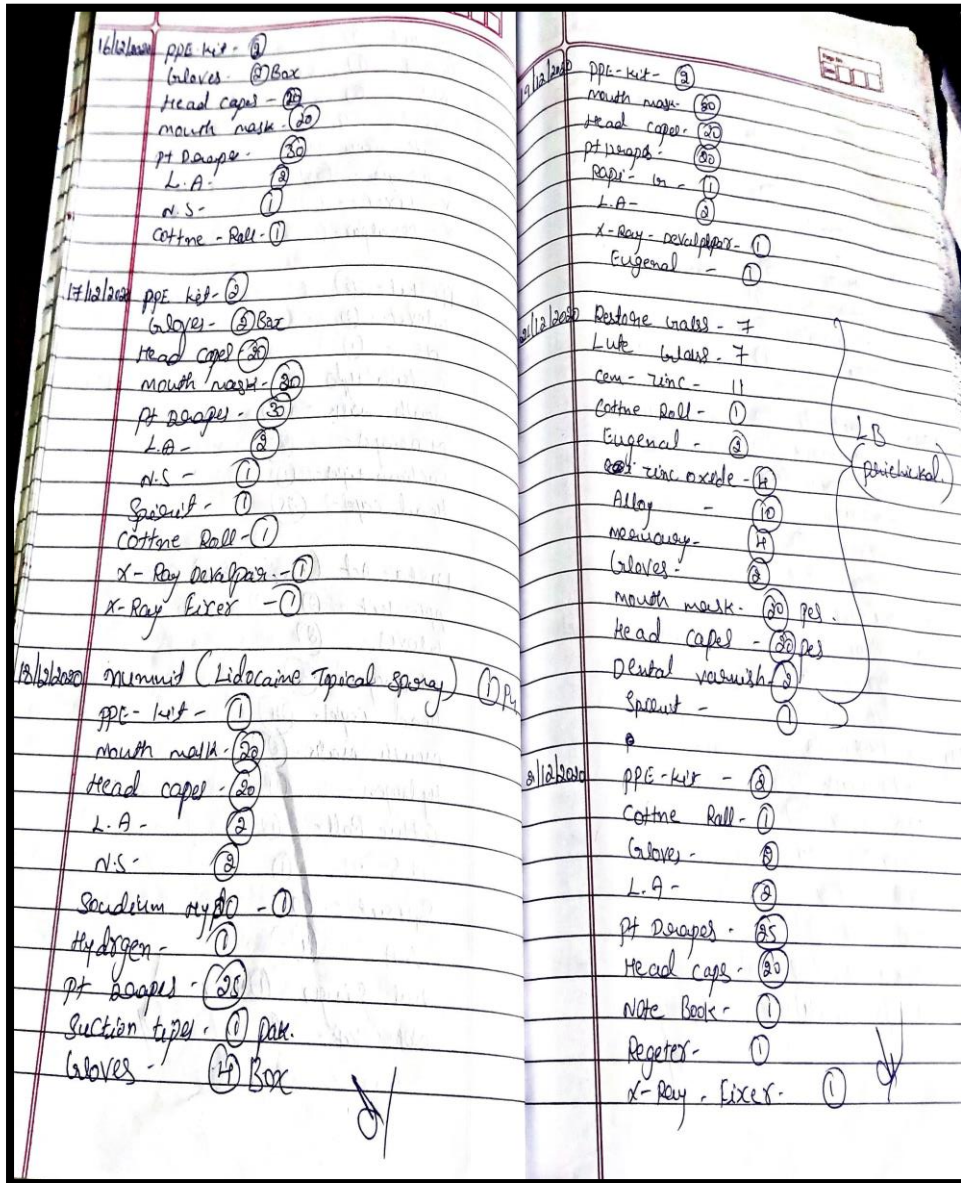 16/12/2020 PPE kit - 2
Gloves - 2 Box
Head capes - 20
mouth mask - 20
pt Drape - 30
L.A - 2
N.S - 1
Cottne - Roll - 1
17/12/2020 PPE kit - 2
Gloves - 2 Box
Head capes 20
mouth mask - 20
pt Drapes - 30
L.A - 2
N.S - 1
- 1
Cottne Roll - 1
X-Ray Devalpair - 1
X-Ray Fixer - 1
18/12/2020 nummit (Lidocaine Topical Spray) 1
PPE - kit - 1
mouth mask - 20
Head capes - 20
L.A - 2
N.S - 2
Soudium Hypo - 1
Hydrgen - 1
pt Drapes - 25
Suction tipes - 1 Pak.
Gloves - 4 Box
19/12/2020 PPE-kit - 2
mouth mask - 20
Head capes - 20
pt Drapes - 20
- 1
L.A - 2
X-Ray - Devalpar - 1
Eugenal - 1
21/12/2020 Restore Glass - 7
Lute Glass - 7
Cem - zinc - 11
Cottne Roll - 1
Eugenal - 2
zinc oxede - 4
Alloy - 10
mercuary - 4
Gloves - 2
mouth mask - 20 pes.
Head capes - 20 pes
Dental varnish - 2
- 1
LB
21/12/2020 PPE-kit - 2
Cottne Roll - 1
Gloves - 2
L.A - 2
pt Drapes - 25
Head caps - 20
Note Book - 1
Regeter - 1
X-Ray - Fixer - 1